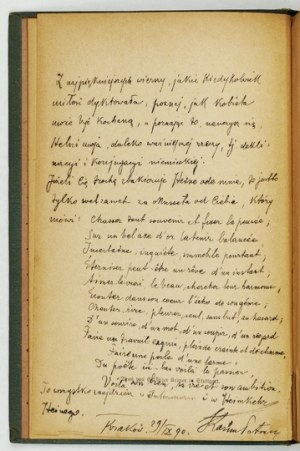 Z najpiękniejszych wierszy, jakie kiedykolwiek
miłość dyktowała, poznaj, jak kobieta
może być kochaną, a poznając to, nauczysz się,
Helciu moja, daleko ważniejszej rzeczy, tj. dekli-
nacyi i konjugacyi niemieckiej.
Jeżeli Cię trochę Heine ode mnie, to jest to
tylko za Musseta od Ciebie, który
mówi: Chasser tout souvenir et fixer la pensée,
Sur un bel axe d'or la tenir balancée
Incertaine, inquiète, immobile pourtant;
Éterniser peut-être un rêve d'un instant;
Aimer le vrai, le beau, chercher leur harmonie;
Écouter dans son cœur l'écho de son génie;
Chanter, rire, pleurer, seul, sans but, au hasard;
D'un sourire, d'un mot, d'un soupir, d'un regard
Faire un travail exquis, plein de crainte et de charme,
Faire une perle d'une larme:
Du poète ici-bas voilà la passion,
Voilà son bien, sa vie et son ambition.
To wszystko znajdziesz w Intermezzo i w Heimkehr
Heinego.
Kraków 29/IX 90.